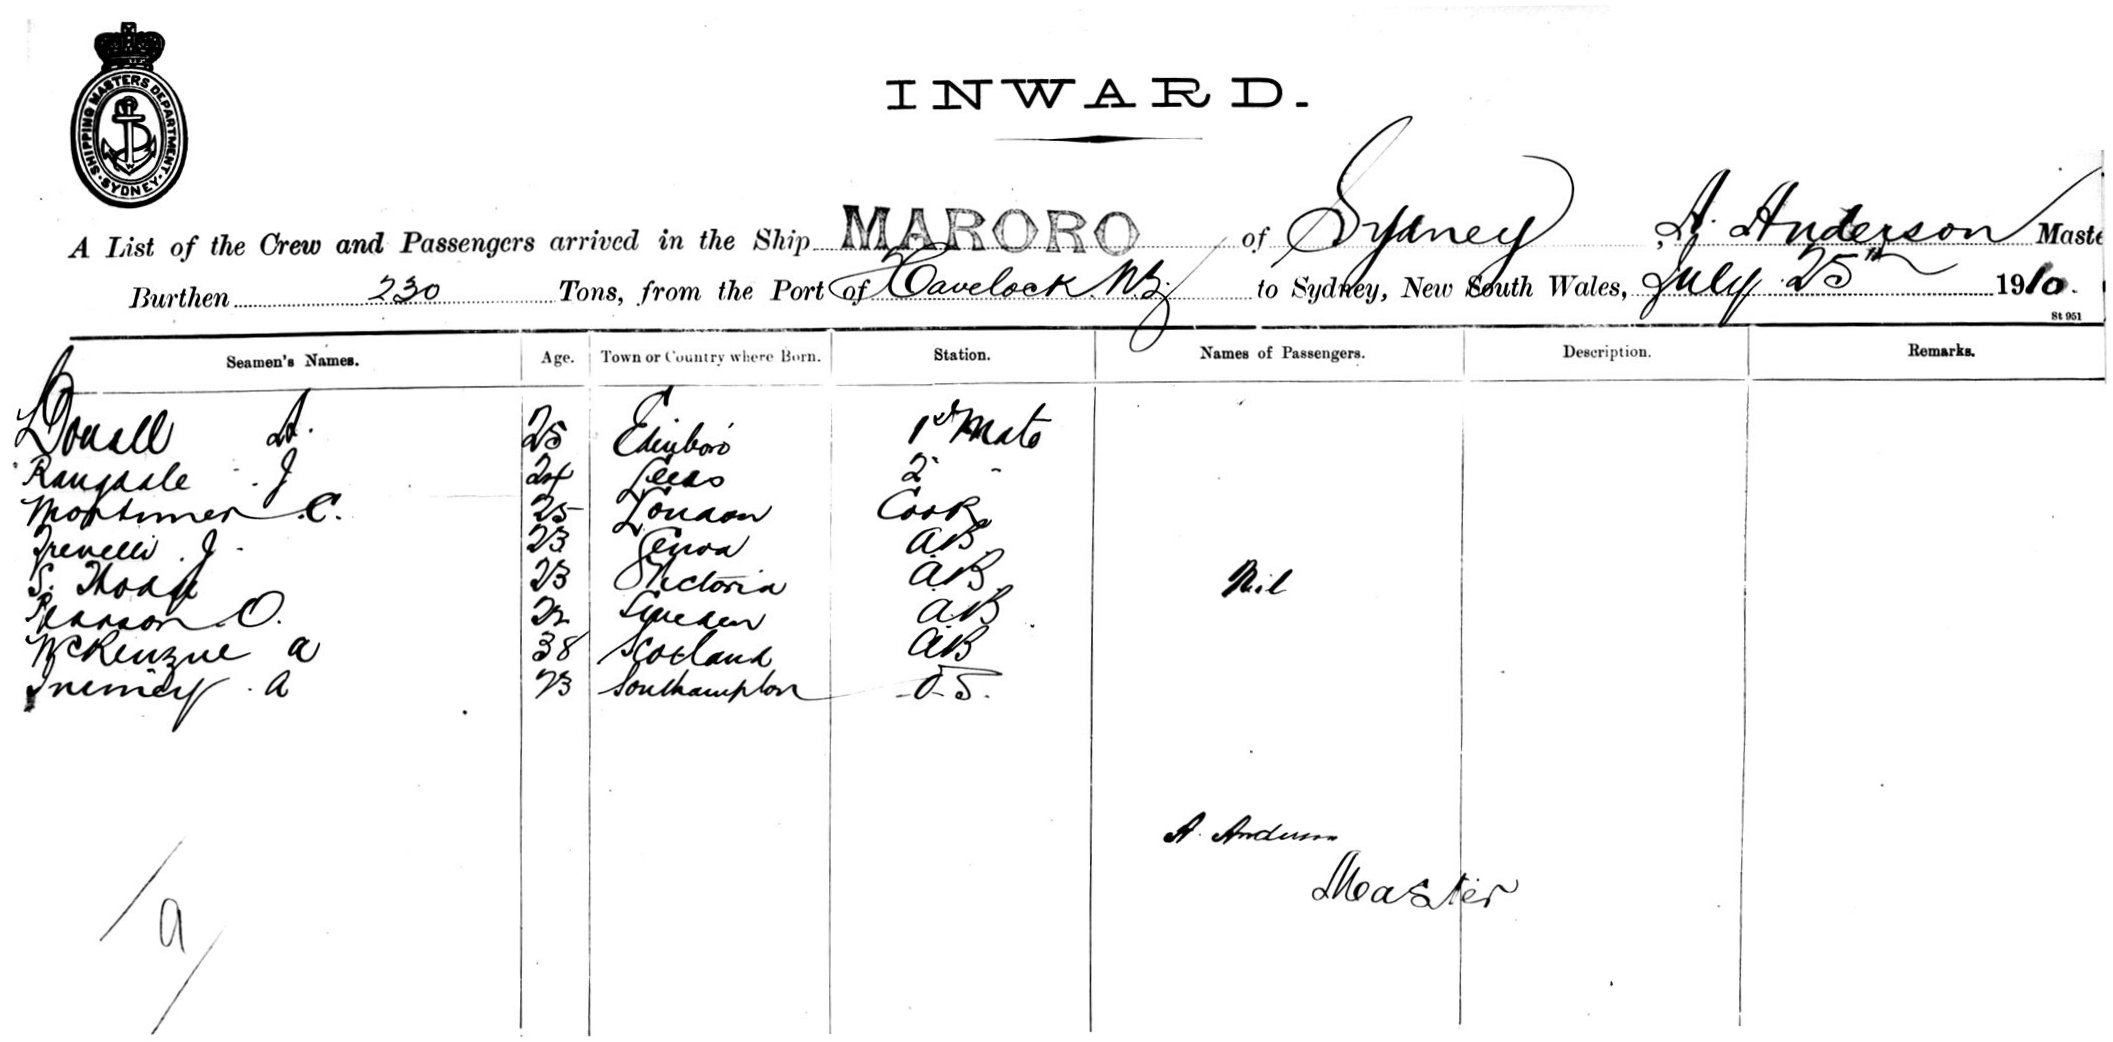 SHIPPING MASTERS DEPARTMENT. SYDNEY.
INWARD.
A List of the Crew and Passengers arrived in the Ship MARORO of Sydney, A. Anderson Maste
Burthen 230 Tons, from the Port of Havelock N.Z. to Sydney, New South Wales, July 25th 1910.
St 951
Seamen's Names. Age. Town or Country where Born. Station. Names of Passengers. Description. Remarks.
A. 25 Edinboro 1st Mate
J 24 Leeds 2 "
Mortimer C. 25 London Cook
J 23 Genoa A.B.
S. 23 Victoria A.B. Nil
O. 22 Sweden A.B
McKenzie A 38 Scotland A.B
A 23 Southampton O.S.
A. Anderson
Master
9